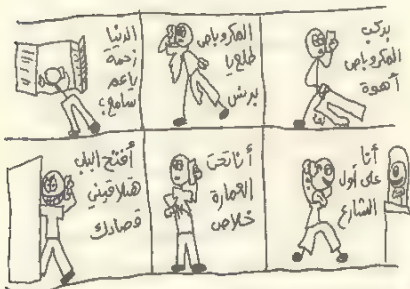 بركب
المكروباص
أهوة
المكروباص
طلع يا
برنس
الدنيا
زحمة
يا عم
سامع؟
أنا
على أول
الشارع
أنا تحت
العمارة
خلاص
أفتح الباب
هتلاقيني
قصادك